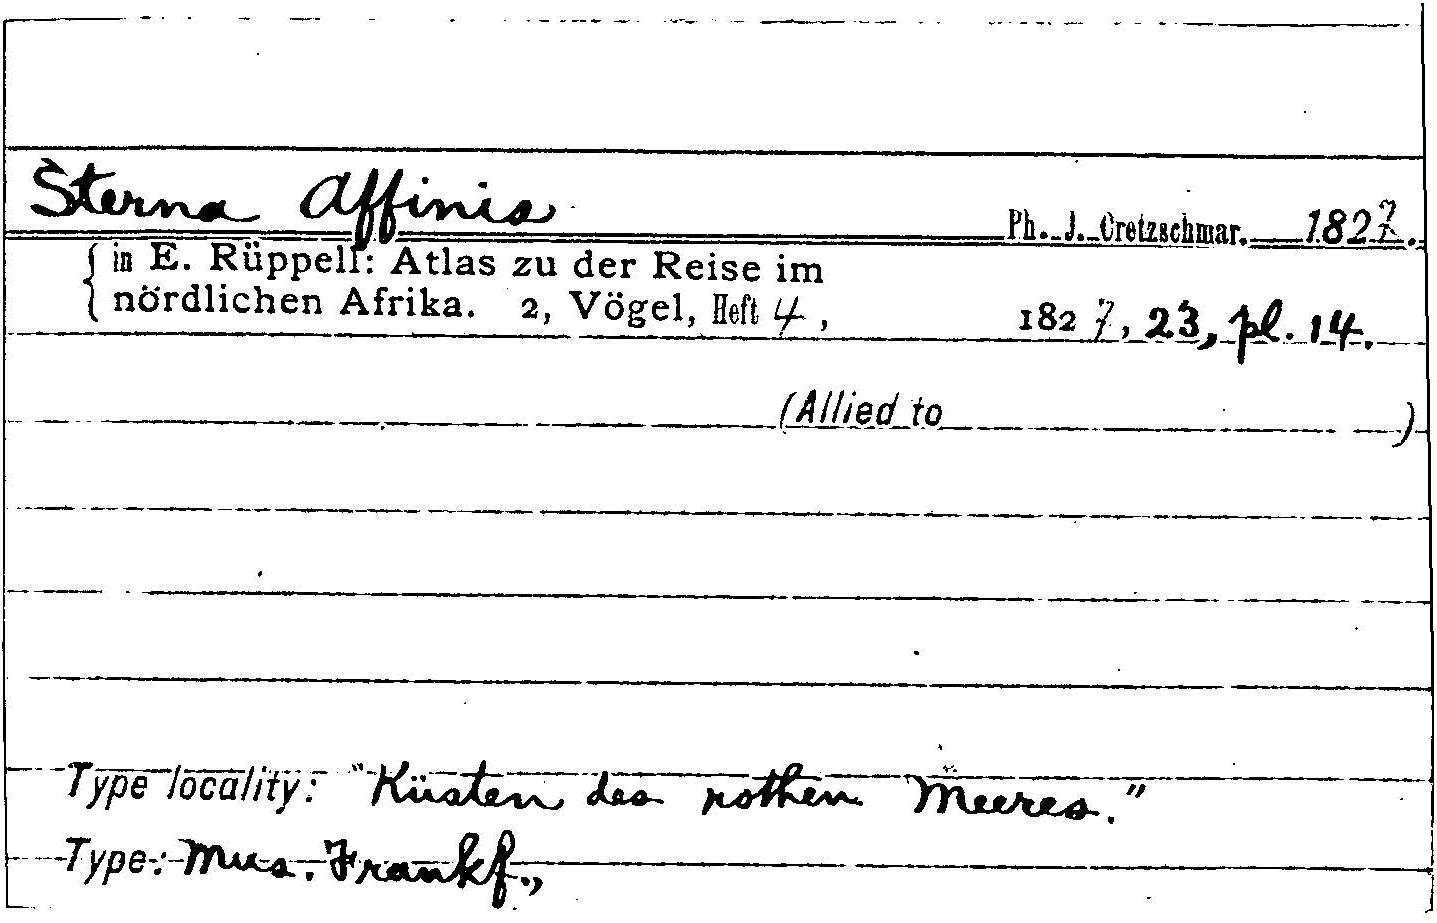 Sterna Affinis
Ph. J. Cretzschmar. 1827.
in E. Rüppell: Atlas zu der Reise im
nördlichen Afrika. 2, Vögel, Heft 4, 1827, 23, pl. 14.
(Allied to )
Type locality: "Küsten des rothen Meeres."
Type: Mus. Frankf.,